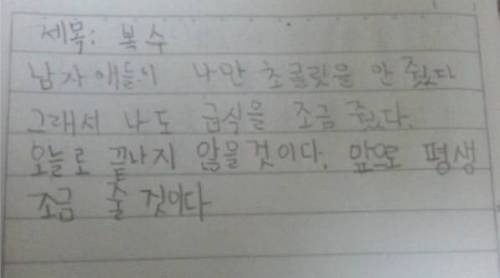 제목: 복수
남자애들이 나만 초콜릿을 안 줬다
그래서 나도 급식을 조금 줬다.
오늘로 끝나지 않을것이다. 앞으로 평생
조금 줄 것이다